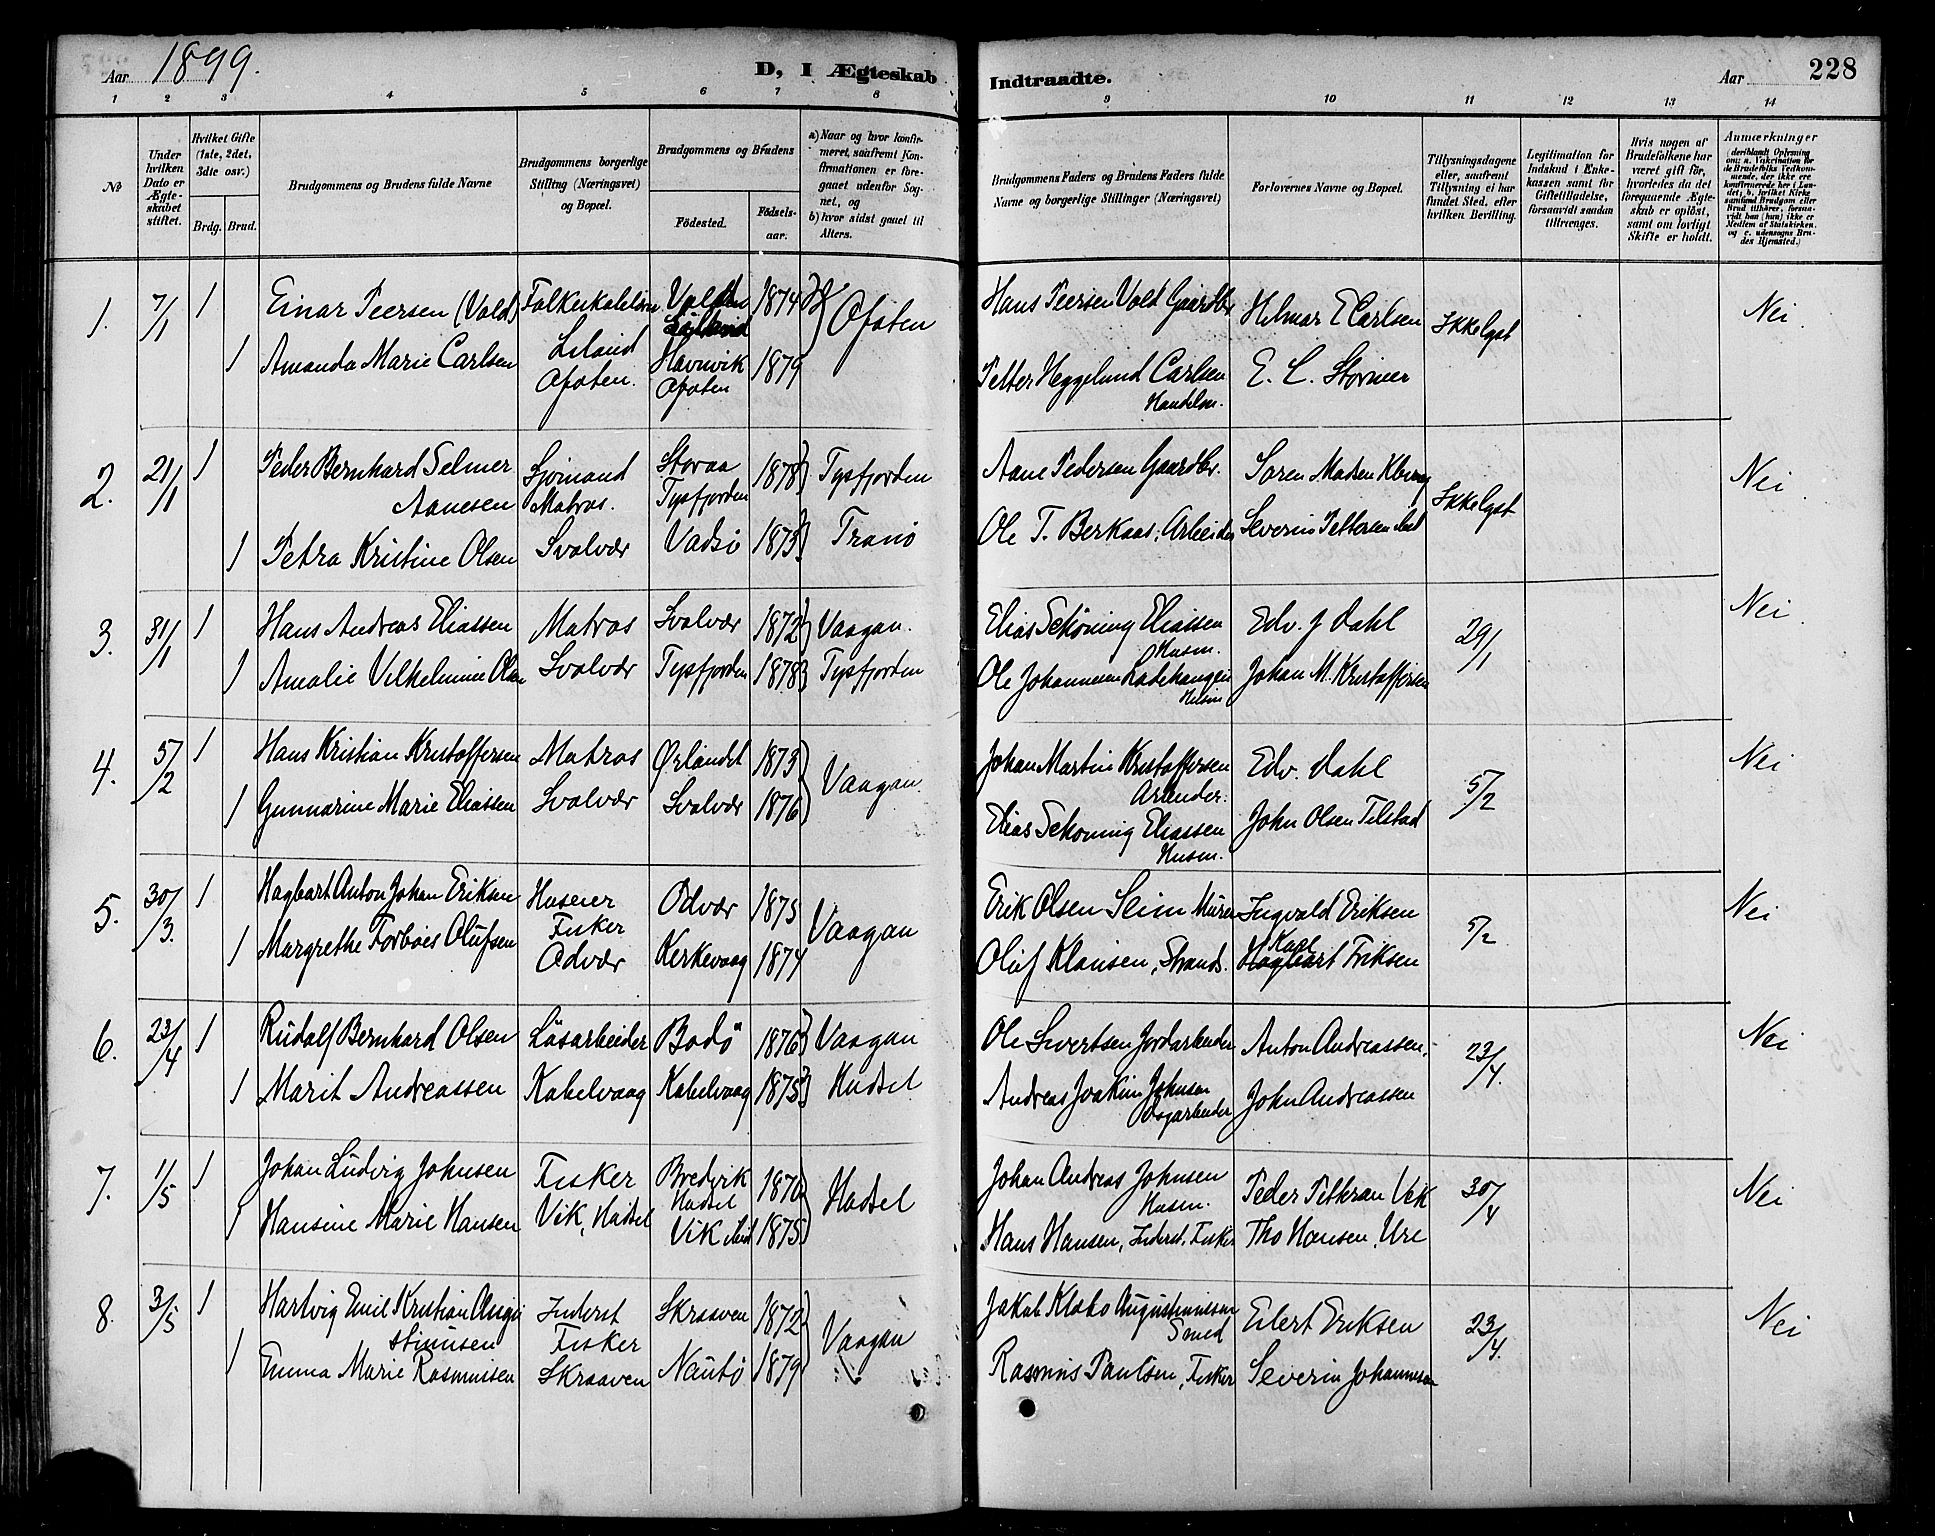 Aar 1899.
D, I Ægteskab Indtraadte.
Aar
228
1 2 3 4 5 6 7 8 9 10 11 12 13 14
No
Under hvilken Dato er Ægteskabet stiftet.
Hvilket Gifte (1ste, 2det, 3die osv.)
Brdg. Brud.
Brudgommens og Brudens fulde Navne
Brudgommens borgerlige Stilling (Næringsvei) og Bopæl.
Brudgommens og Brudens
Fødested.
Fødselsaar.
a) Naar og hvor konfirmeret, saafremt Konfirmationen er foregaaet udenfor Sognet, og
b) hvor sidst gaaet til Alters.
Brudgommens Faders og Brudens Faders fulde Navne og borgerlige Stillinger (Næringsvei)
Forlovernes Navne og Bopæl.
Tillysningsdagene eller, saafremt Tillysning ei har fundet Sted, efter hvilken Bevilling.
Legitimation for Indskud i Enkekassen samt for Giftetilladelse, forsaavidt saadan tiltrænges.
Hvis nogen af Brudefolkene har været gift før, hvorledes da det foregaaende Ægteskab er opløst, samt om lovligt Skifte er holdt.
Anmærkninger
1. 7/1 1 Einar Peersen (Vold) Vold 1874 Ofoten Hans Peersen Vold Gaardbr Hilmar E Carlsen Ikke lyst Nei
1 Amanda Marie Carlsen Liland Ofoten. Havnvik Ofoten 1879 Petter Heggelund Carlsen Handelsm. E. C. Stormer
2. 21/1 1 Peder Bernhard Selmer Aanesen Sjömand Matros. Storaa Tysfjorden 1878 Tysfjorden Aane Pedersen Gaardbr. Soren Madsen Ikke lyst Nei
1 Petra Kristine Olsen Svolvær Vadsö 1873 Tranö Ole T. Berkaas, Arbeider Severin Pettersen
3. 31/1 1 Hans Andreas Eliassen Matros Svolvær 1872 Vaagan. Elias Schöning Eliassen Husm. Edv. J Dahl 29/1 Nei
1 Amalie Vilhelmine Olsen Svolvær Tysfjorden 1878 Tysfjorden Ole Johannesen Husm Johan M. Kristoffersen
4. 5/2 1 Hans Kristian Kristoffersen Matros Ørlandet 1873 Vaagan. Johan Martin Kristoffersen Arbeider. Edv. Dahl 5/2 Nei
1 Gunnarine Marie Eliassen Svolvær Svolvær 1876 Elias Schöning Eliassen Husm. John Olsen Tilstad
5. 30/3. 1 Hagbart Anton Johan Eriksen Huseier Fisker Odvær 1875 Vaagan Erik Olsen Seim Murer Ingvald Eriksen 5/2 Nei
1 Margrethe Olufsen Odvær Kirkevaag 1874 Oluf Klausen, Strands. Karl Hagbart Eriksen
6. 23/4 1 Rudolf Bernhard Olsen Lösarbeider Bodö 1876 Vaagan Ole Sivertsen Jordarbeider Anton Andreassen. 23/4. Nei
1 Marit Andreassen Kabelvaag Kabelvaag 1875 Hadsel Andreas Joakim Johnsen Dagarbeider John Andreassen
7. 1/5 1 Johan Ludvig Johnsen Fisker Bredvik Hadsel 1870 Hadsel Johan Andreas Johnsen Husm. Peder Vik 30/4 Nei
1 Hansine Marie Hansen Vik, Hadsel Vik ibid 1875 Hans Hansen, Inderst. Fisker Tho Hansen, Ure
8. 3/5 1 Hartvig Emil Kristian Augustinusen Inderst Fisker Skraaven 1872 Vaagan Jakob Klabo Augustinussen Smed Eilert Eriksen 23/4. Nei
1 Emma Marie Rasmussen Skraaven Nautö 1879 Rasmus Paulsen, Fisker Severin Johannesen